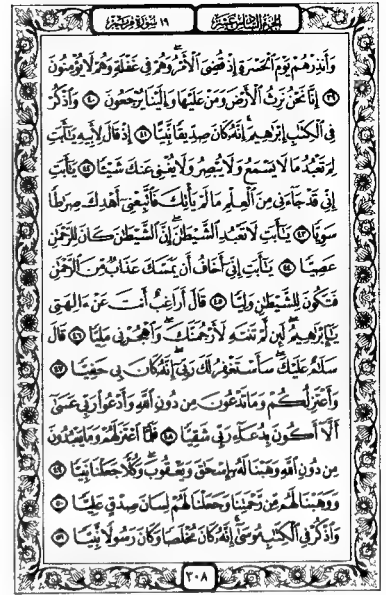 الجزء السادس عشر
١٩ سورة مريم
وَأَنذِرْهُمْ يَوْمَ الْحَسْرَةِ إِذْ قُضِيَ الْأَمْرُ وَهُمْ فِي غَفْلَةٍ وَهُمْ لَا يُؤْمِنُونَ
٣٩ إِنَّا نَحْنُ نَرِثُ الْأَرْضَ وَمَنْ عَلَيْهَا وَإِلَيْنَا يُرْجَعُونَ ٤٠ وَاذْكُرْ
فِي الْكِتَٰبِ إِبْرَٰهِيمَ إِنَّهُ كَانَ صِدِّيقًا نَّبِيًّا ٤١ إِذْ قَالَ لِأَبِيهِ يَٰٓأَبَتِ
لِمَ تَعْبُدُ مَا لَا يَسْمَعُ وَلَا يُبْصِرُ وَلَا يُغْنِي عَنكَ شَيْئًا ٤٢ يَٰٓأَبَتِ
إِنِّي قَدْ جَآءَنِي مِنَ الْعِلْمِ مَا لَمْ يَأْتِكَ فَاتَّبِعْنِيٓ أَهْدِكَ صِرَٰطًا
سَوِيًّا ٤٣ يَٰٓأَبَتِ لَا تَعْبُدِ الشَّيْطَٰنَ إِنَّ الشَّيْطَٰنَ كَانَ لِلرَّحْمَٰنِ
عَصِيًّا ٤٤ يَٰٓأَبَتِ إِنِّيٓ أَخَافُ أَن يَمَسَّكَ عَذَابٌ مِّنَ الرَّحْمَٰنِ
فَتَكُونَ لِلشَّيْطَٰنِ وَلِيًّا ٤٥ قَالَ أَرَاغِبٌ أَنتَ عَنْ ءَالِهَتِي
يَٰٓإِبْرَٰهِيمُ لَئِن لَّمْ تَنتَهِ لَأَرْجُمَنَّكَ وَاهْجُرْنِي مَلِيًّا ٤٦ قَالَ
سَلَٰمٌ عَلَيْكَ سَأَسْتَغْفِرُ لَكَ رَبِّيٓ إِنَّهُ كَانَ بِي حَفِيًّا ٤٧
وَأَعْتَزِلُكُمْ وَمَا تَدْعُونَ مِن دُونِ اللَّهِ وَأَدْعُوا رَبِّي عَسَىٰٓ
أَلَّآ أَكُونَ بِدُعَآءِ رَبِّي شَقِيًّا ٤٨ فَلَمَّا اعْتَزَلَهُمْ وَمَا يَعْبُدُونَ
مِن دُونِ اللَّهِ وَهَبْنَا لَهُۥٓ إِسْحَٰقَ وَيَعْقُوبَ وَكُلًّا جَعَلْنَا نَبِيًّا ٤٩
وَوَهَبْنَا لَهُم مِّن رَّحْمَتِنَا وَجَعَلْنَا لَهُمْ لِسَانَ صِدْقٍ عَلِيًّا ٥٠
وَاذْكُرْ فِي الْكِتَٰبِ مُوسَىٰٓ إِنَّهُ كَانَ مُخْلَصًا وَكَانَ رَسُولًا نَّبِيًّا ٥١
٣٠٨